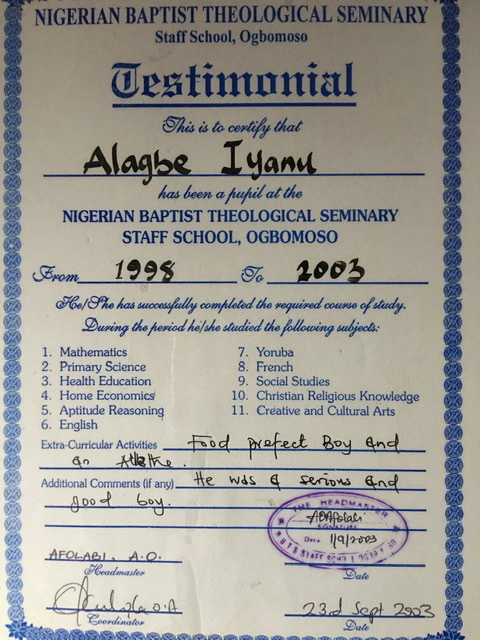 NIGERIAN BAPTIST THEOLOGICAL SEMINARY
Staff School, Ogbomoso
Testimonial
This is to certify that
Alagbe Iyanu
has been a pupil at the
NIGERIAN BAPTIST THEOLOGICAL SEMINARY
STAFF SCHOOL, OGBOMOSO
From 1998 To 2003
He/She has successfully completed the required course of study.
During the period he/she studied the following subjects:
1. Mathematics
2. Primary Science
3. Health Education
4. Home Economics
5. Aptitude Reasoning
6. English
7. Yoruba
8. French
9. Social Studies
10. Christian Religious Knowledge
11. Creative and Cultural Arts
Extra-Curricular Activities Food prefect Boy and
an
Additional Comments (if any) He was a serious and
good boy.
THE HEADMASTER
Date 1/9/2003
AFOLABI. A.O.
Headmaster
Date
Coordinator
23rd Sept 2003
Date